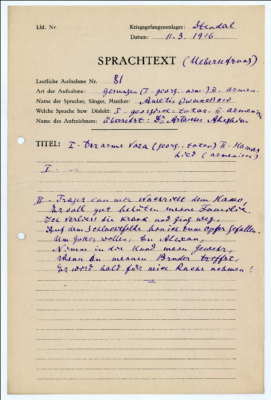 Lfd. Nr.
Kriegsgefangenenlager: Stendal
Datum: 11.3.1916
SPRACHTEXT (Uebersetzung)
Lautliche Aufnahme Nr. 81
Art der Aufnahme: gesungen (I. georg. II. armen.
Name des Sprecher, Sänger, Musiker: Awetis
Welche Sprache bzw. Dialekt: I. georgisch II. armen.
Name des Aufzeichners: übersetzt: Dr Artasches Abeghian
TITEL: I - Der arme Vaza (georg. ) II. Hamos
Lied (armenisch)
I. —
II. Traget von mir Nachricht dem Hamo,
Er soll gut behüten meine Familie,
Ich verliess sie krank und ging weg.
Auf dem Schlachtfelde bin ich zum Opfer gefallen.
Um Gottes willen, Du Alexan,
Nimm in die Hand mein Gewehr,
Wenn du meinen Bruder triffst,
Er wird bald für mich Rache nehmen!